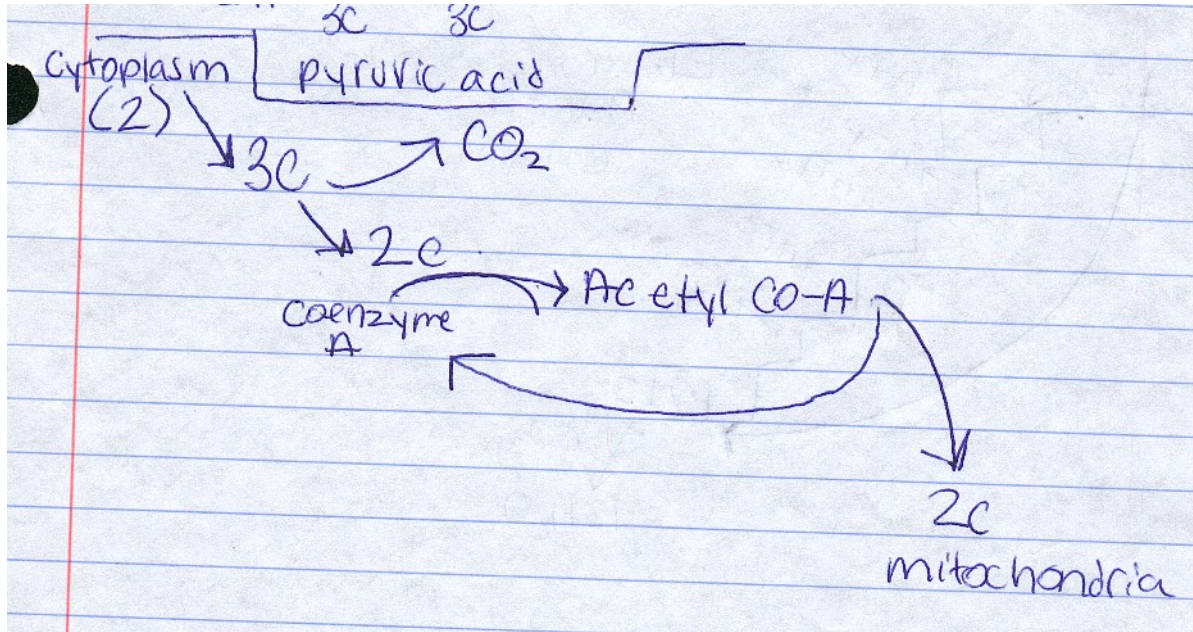 3C 3C
Cytoplasm pyruvic acid
(2)
3C CO2
2C
Coenzyme
A
Acetyl CO-A
2C
mitochondria